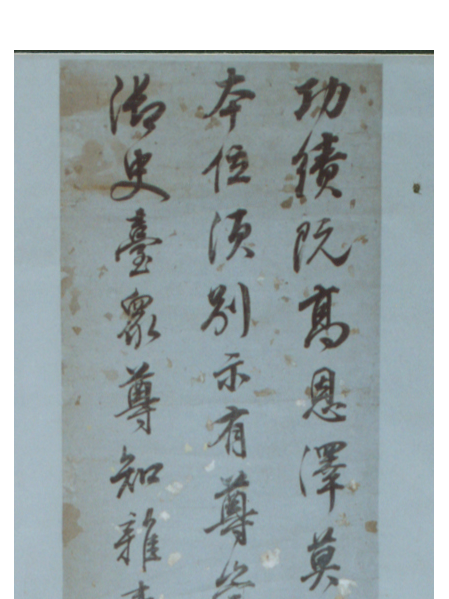 功績既高恩澤莫
本位須別示有尊
御史臺眾尊知雜